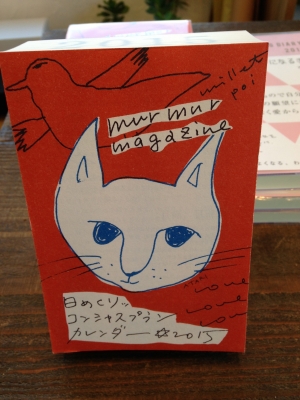 2015
millet
poi
murmur
magazine
love
love
love
日めくりッ
コンシャスプラン
カレンダー☆2015